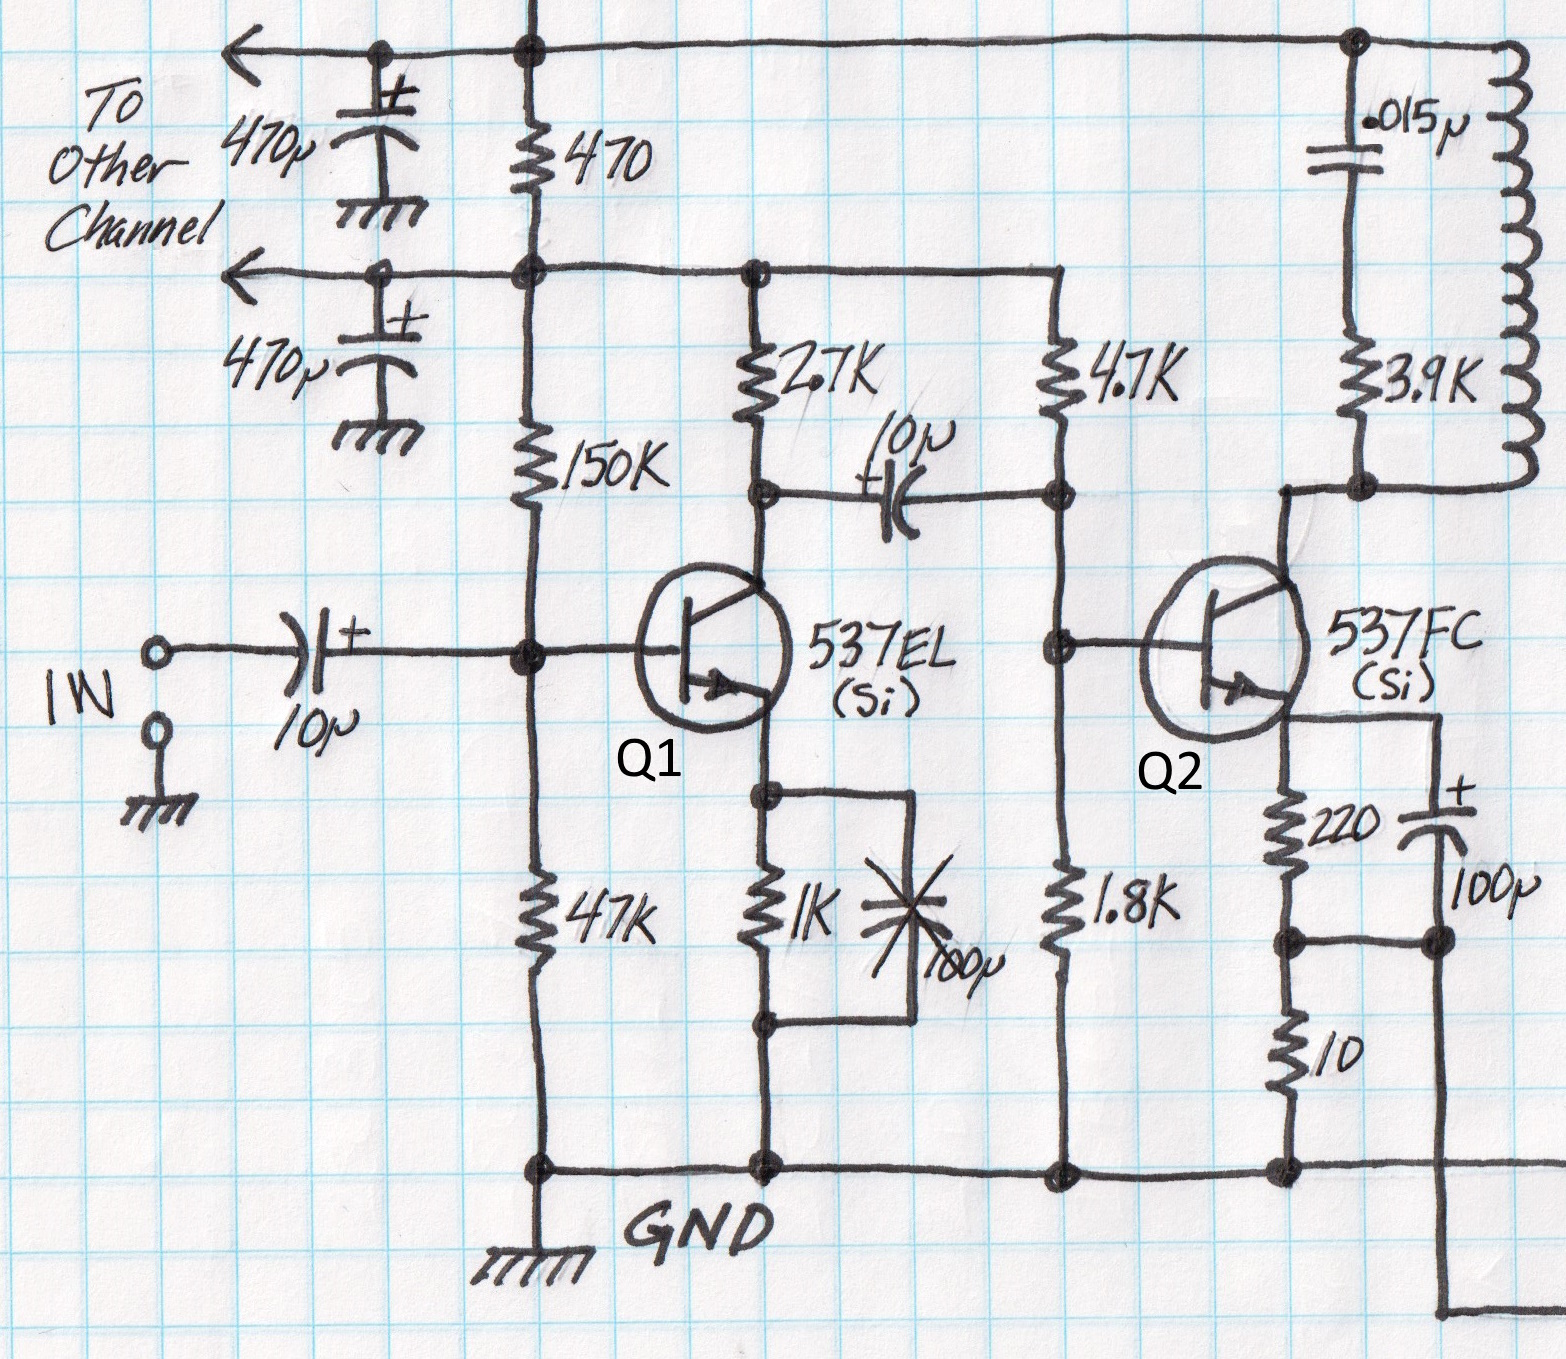 To
Other
Channel
470µ
+
470
.015µ
470µ
+
2.7K
4.7K
3.9K
10µ
+
150K
IN
10µ
+
537EL
(Si)
Q1
537FC
(Si)
Q2
47K
1K
100µ
1.8K
220
+
100µ
10
GND